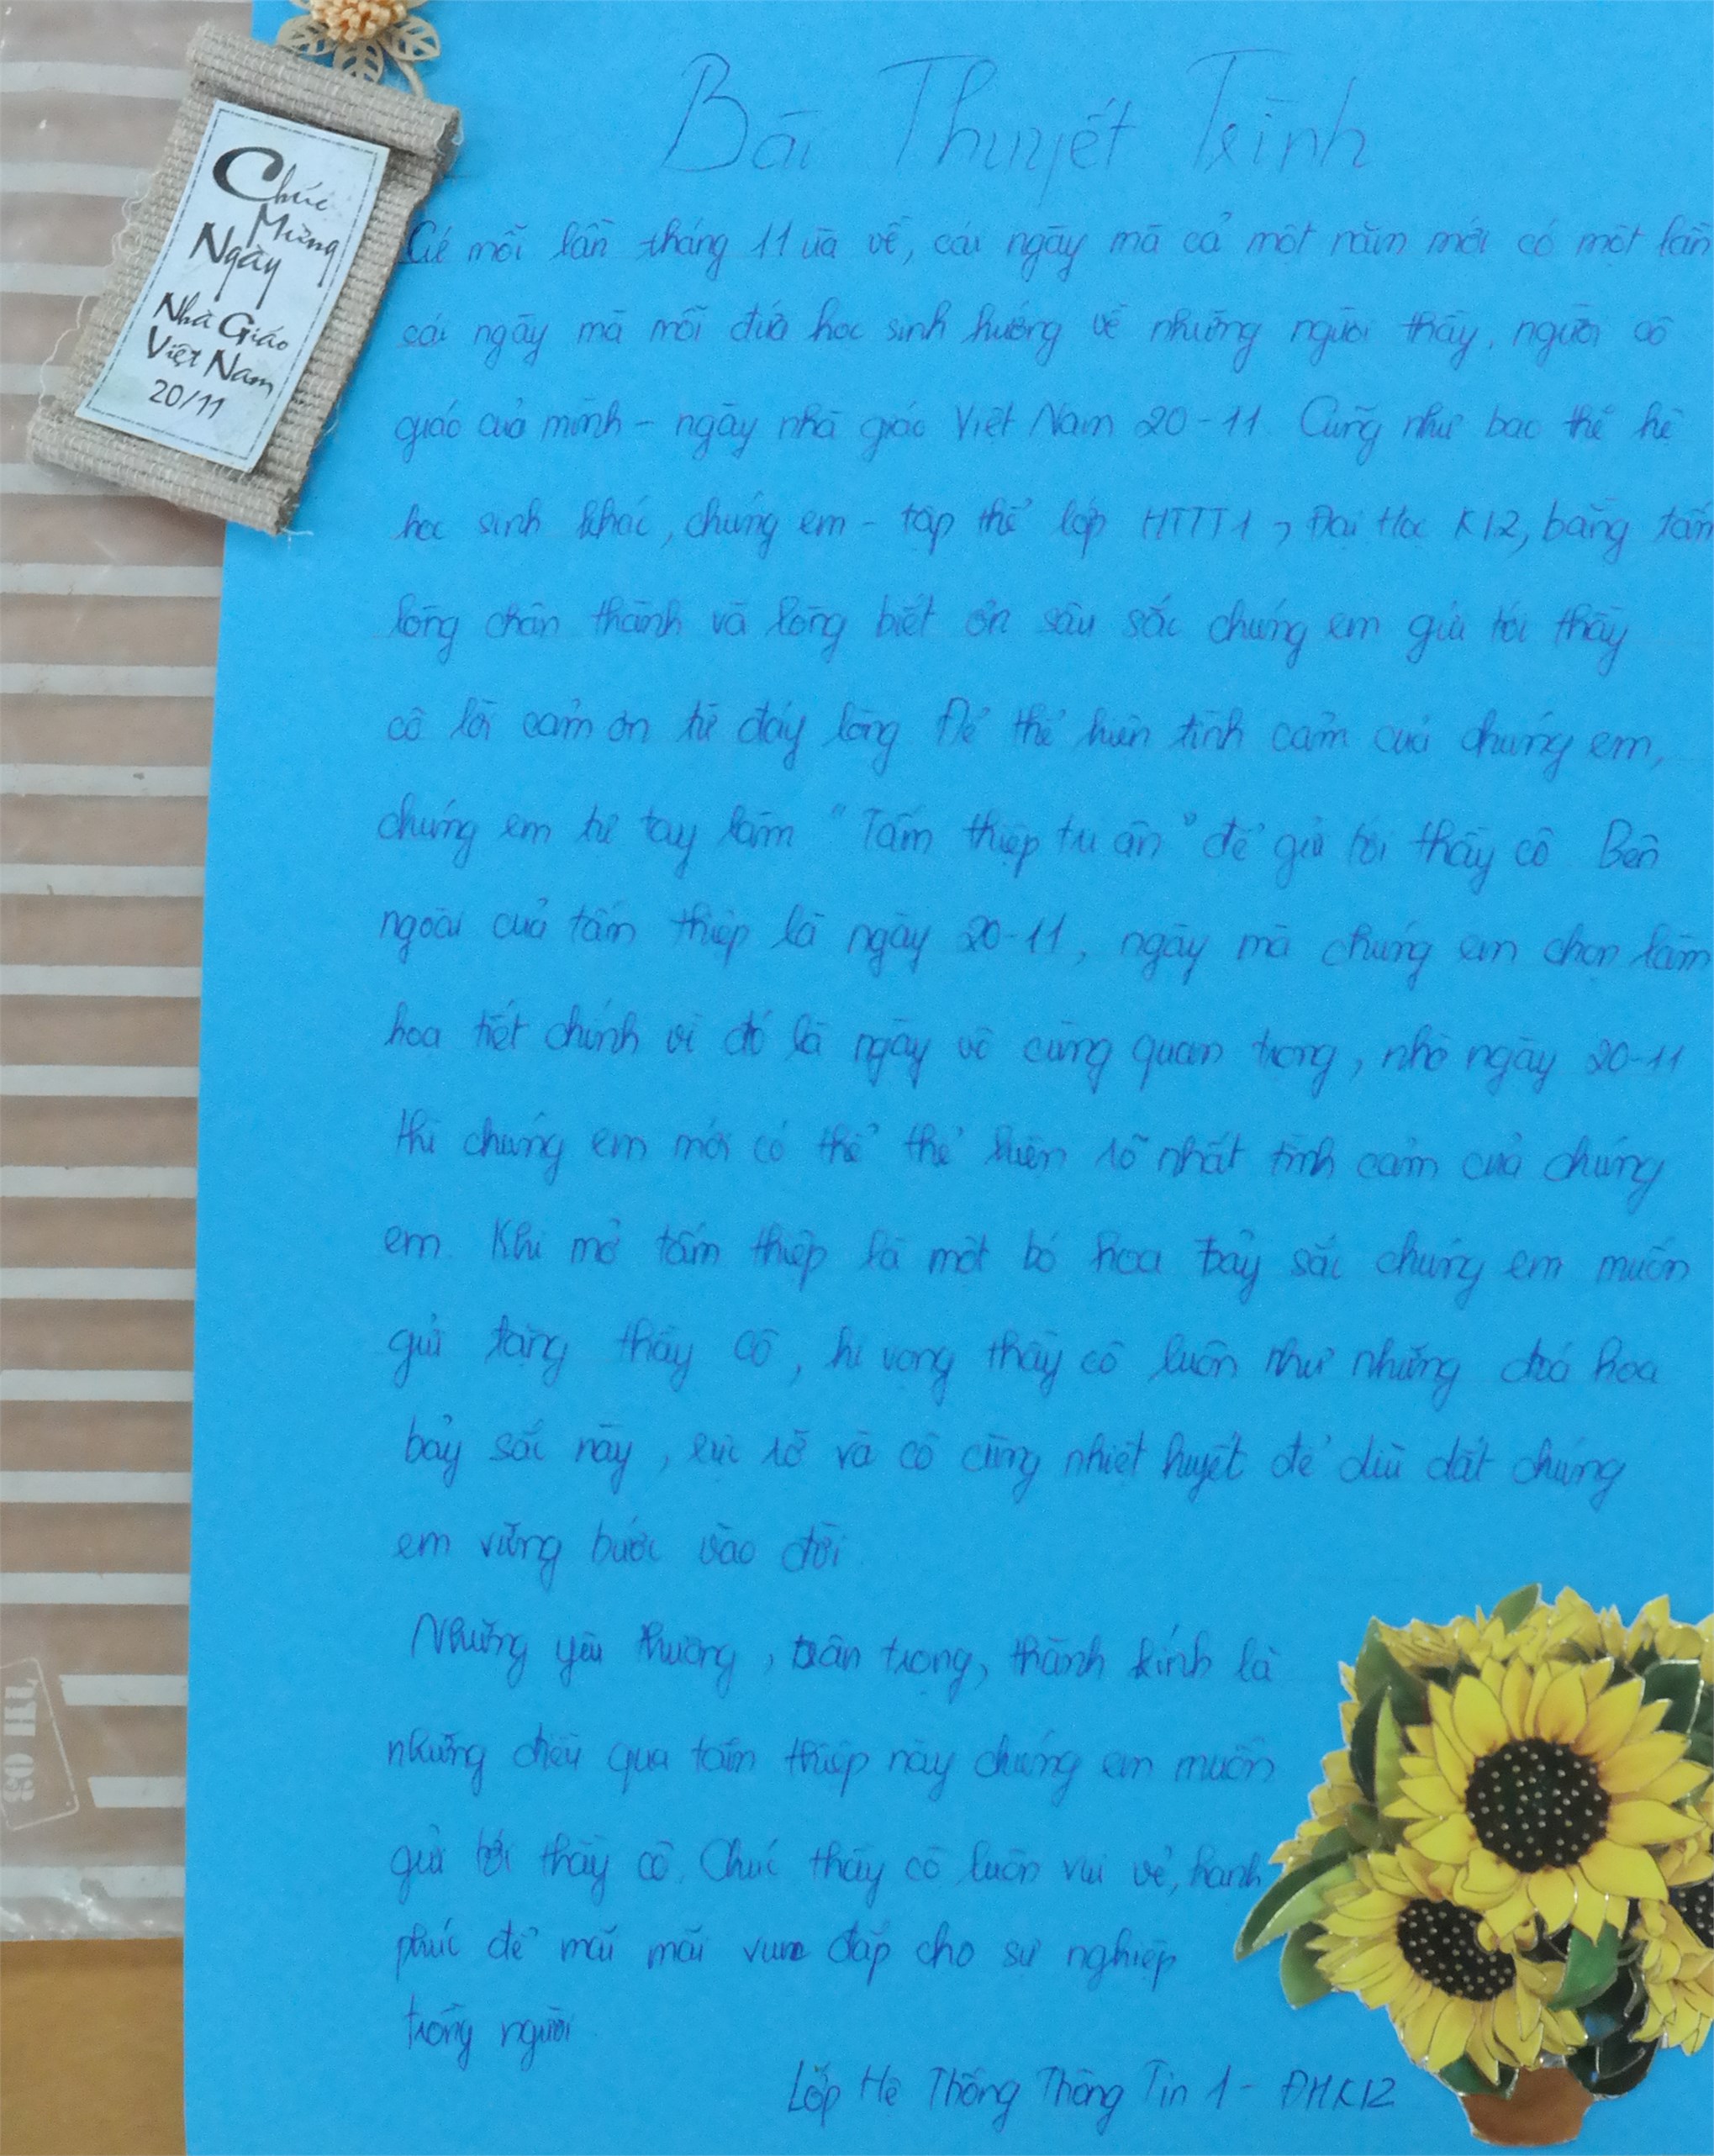 Chúc
Mừng
Ngày
Nhà Giáo
Việt Nam
20/11
Bài Thuyết Trình
Cứ mỗi lần tháng 11 ùa về, cái ngày mà cả một năm mới có một lần
cái ngày mà mỗi đứa học sinh hướng về những người thầy, người cô
giáo của mình - ngày nhà giáo Việt Nam 20-11. Cũng như bao thế hệ
học sinh khác, chúng em - tập thể lớp HTTT1, Đại Học K12, bằng tấm
lòng chân thành và lòng biết ơn sâu sắc chúng em gửi tới thầy
cô lời cảm ơn từ đáy lòng Để thể hiện tình cảm của chúng em,
chúng em tự tay làm "Tấm thiệp tri ân" để gửi tới thầy cô Bên
ngoài của tấm thiệp là ngày 20-11, ngày mà chúng em chọn làm
hoa tiết chính vì đó là ngày vô cùng quan trọng, nhờ ngày 20-11
thì chúng em mới có thể thể hiện rõ nhất tình cảm của chúng
em. Khi mở tấm thiệp là một bó hoa bảy sắc chúng em muốn
gửi tặng thầy cô, hi vọng thầy cô luôn như những đoá hoa
bảy sắc này, rực rỡ và cô cùng nhiệt huyết để dìu dắt chúng
em vững bước vào đời
Những yêu thương, trân trọng, thành kính là
những điều qua tấm thiệp này chúng em muốn
gửi tới thầy cô. Chúc thầy cô luôn vui vẻ, hạnh
phúc để mãi mãi vun đắp cho sự nghiệp
trồng người
Lớp Hệ Thống Thông Tin 1 - ĐHK12